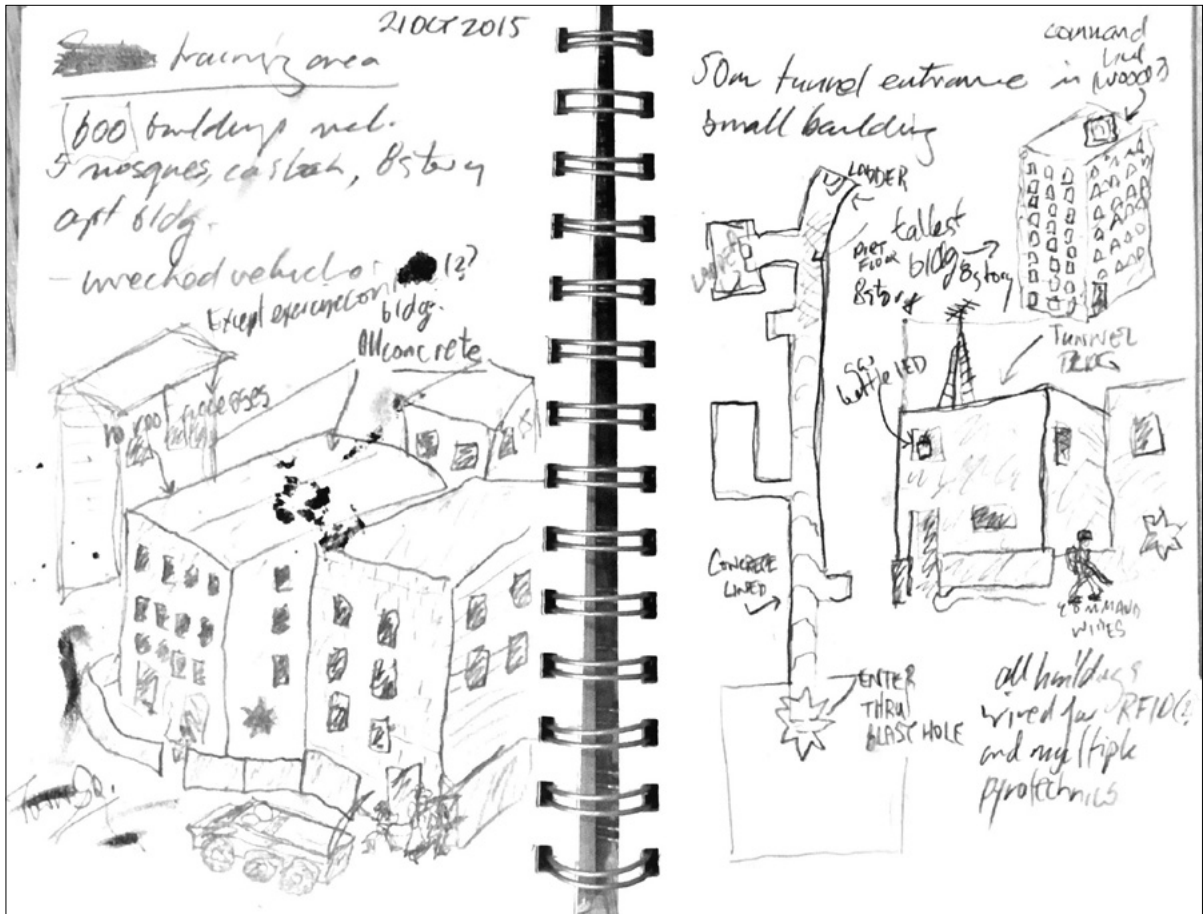 21 OCT 2015
training area
600 buildings incl.
5 mosques, casbah, 8 story
apt bldg.
- wrecked vehicles
(2?)
Except exercise con
bldg.
All concrete
no roof
50m tunnel entrance in
small building
command
(W0000?)
LADDER
LADDER
DIRT
FLOOR
tallest
bldg 8 story
8 story
TUNNEL
BLDG
bottle IED
CONCRETE
LINED
COMMAND
WIRES
ENTER
THRU
BLAST HOLE
all buildings
wired for RFID(?)
and multiple
pyrotechnics